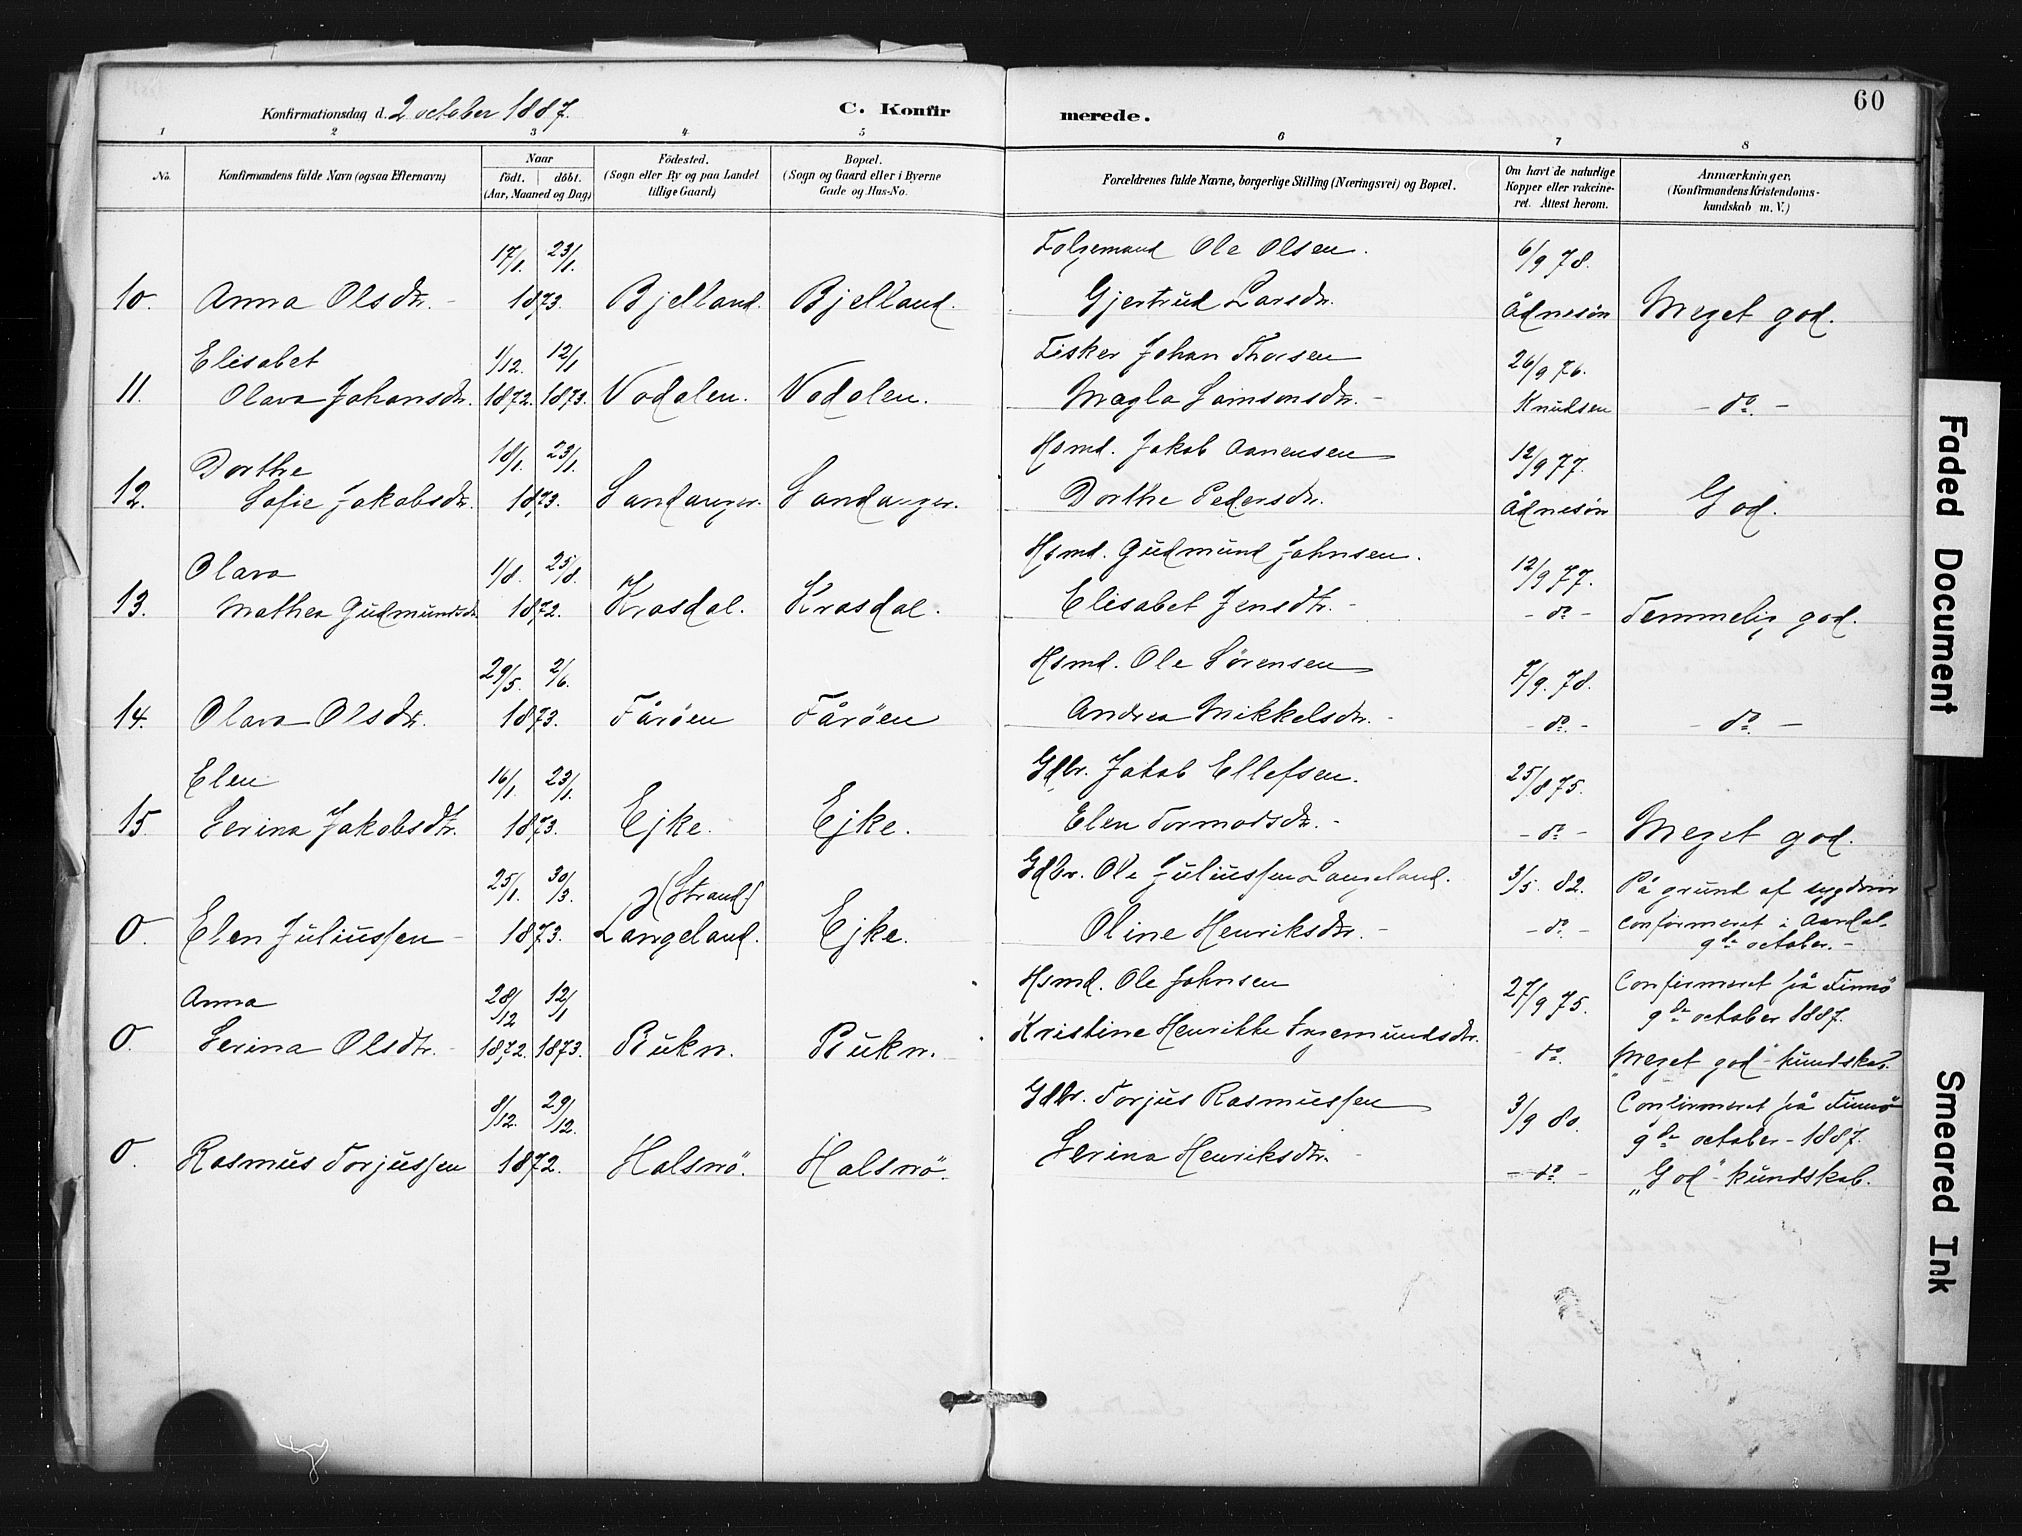 60
Konfirmationsdag d. 2 october 1887. C. Konfirmerede.
1 2 3 4 5 6 7 8
No. Konfirmandens fulde Navn (ogsaa Efternavn) Naar födt. döbt. (Aar, Maaned og Dag) Födested. (Sogn eller By og paa Landet tillige Gaard) Bopæl. (Sogn og Gaard eller i Byerne Gade og Hus-No. Forældrenes fulde Navne, borgerlige Stilling (Næringsvei) og Bopæl. Om havt de naturlige Kopper eller vakcineret. Attest herom. Anmærkninger, (Konfirmandens Kristendomskundskab m. V.)
17/1. 23/1. Ole Olsen. 6/9 78.
10. Anna Olsdtr. 1873. Bjelland. Bjelland. Gjertrud Larsdtr. Ådnesön Meget god.
Elisabet 1/12. 12/1 Fisker Johan Thorsen 26/9 76.
11. Olava Johansdtr. 1872. 1873. Vadalen. Vadalen. Magla Samsonsdtr. Knudsen - do. -
Dorthe 18/1. 23/1. Hsmd. Jakob Aanensen 12/9 77.
12. Sofie Jakobsdtr. 1873. Sandanger. Sandanger. Dorthe Pedersdtr. Ådnesön God.
Olava 1/8. 25/8. Hsmd. Gudmund Johnsen. 12/9 77.
13. Mathea Gudmundsdtr. 1872. Krosdal. Krosdal. Elisabet Jensdtr. - do - Temmelig god.
29/5. 2/6. Hsmd. Ole Sörensen 7/9. 78.
14. Olava Olsdtr. 1873. Fåröen Fåröen Andrea Mikkelsdtr. - do. - - do. -
Elen 16/1. 23/1. Gdbr. Jakob Ellefsen. 25/8 75.
15. Serina Jakobsdtr. 1873. Ejke. Ejke. Elen Tormodsdtr. - do - Meget god.
25/1. 30/3. (Strand) Gdbr. Ole Juliussen Langeland. 3/5. 82. På grund af sygdom
0. Elen Juliussen 1873. Langeland. Ejke. Oline Henriksdtr. - do. - confirmeret i Aardal
9de october. -
Anna 28/12 12/1 Hsmd. Ole Johnsen 27/9 75. Confirmeret på Finnö
9de october 1887.
0. Serina Olsdtr. 1872. 1873. Bukn. Bukn. Kristine Henrikke Ingemundsdtr. - do. „Meget god" kundskab.
8/12. 29/12. Gdbr. Torjus Rasmussen 3/9 80. Confirmeret på Finnö
9de october - 1887.
0. Rasmus Torjussen 1872. Halsnö. Halsnö. Serina Henriksdtr. - do. - „God" - kundskab.
Faded Document
Smeared Ink